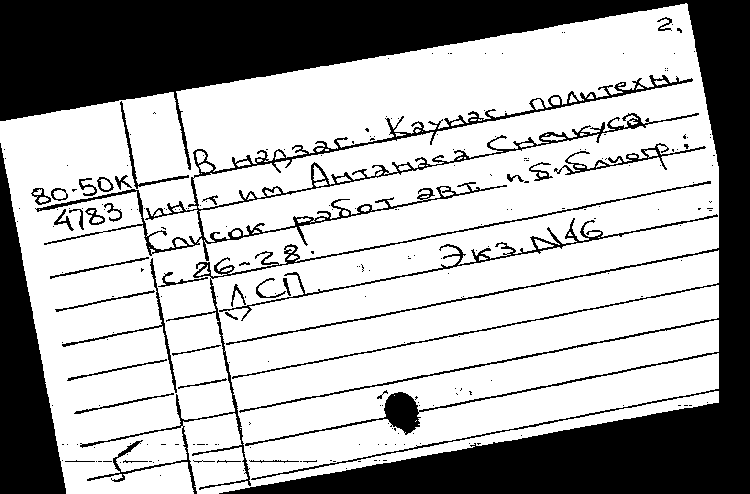 2.
В надзаг.: Каунас. политехн.
80-50К
4783
ин-т им Антанаса Снечкуса.
Список работ авт. и библиогр.:
с. 26-28.
Экз. N46
СП
5